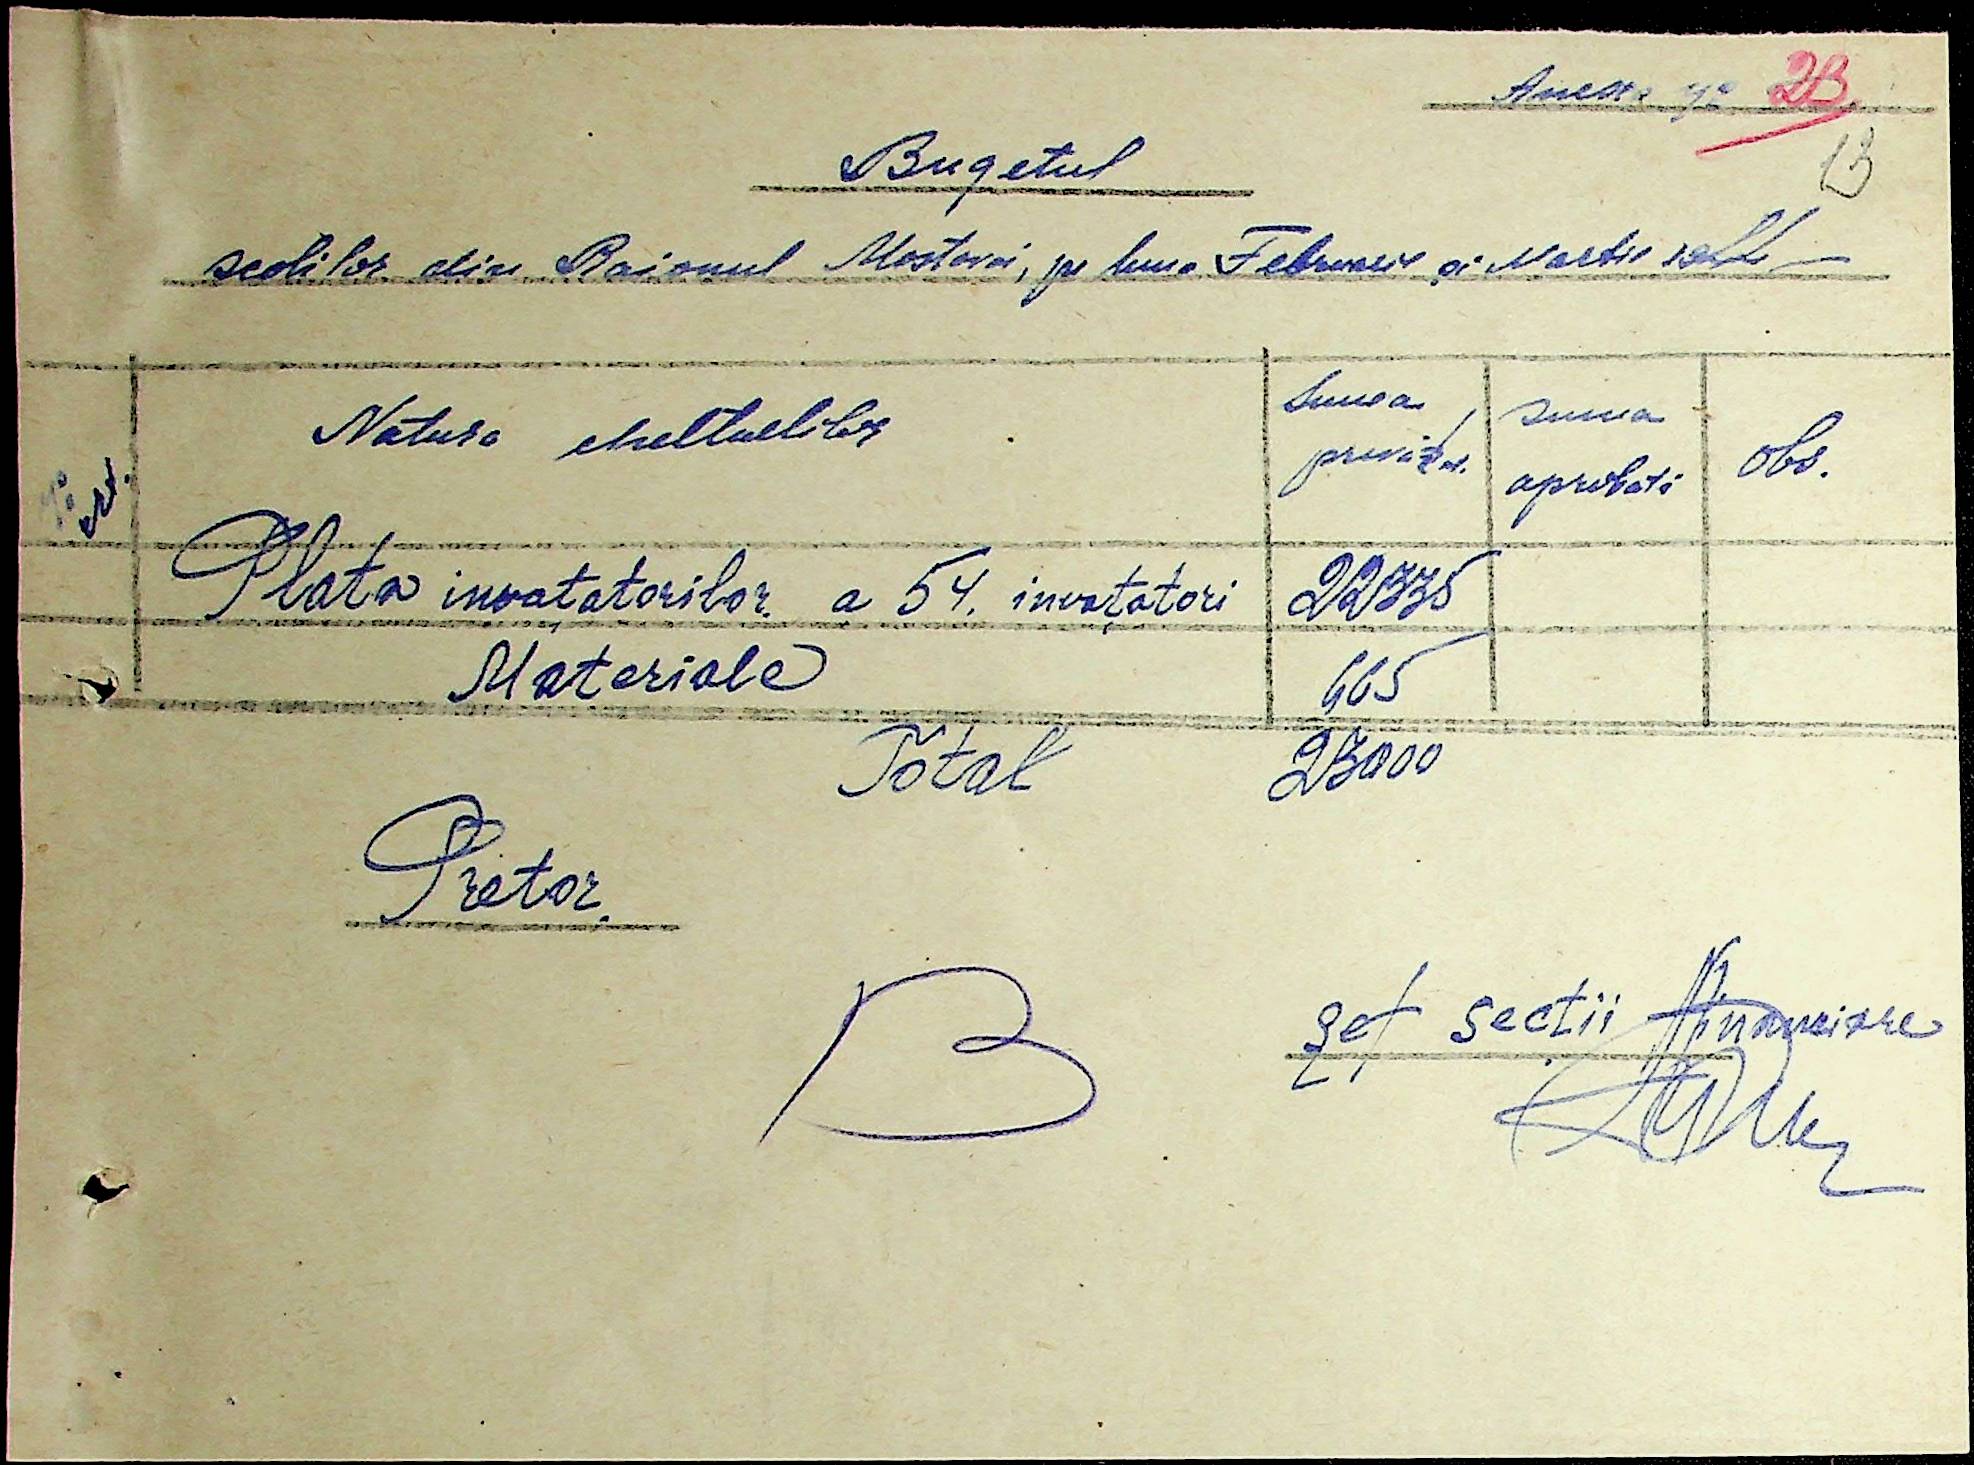 Anexa No 23.
13
Bugetul
scolilor din Raionul Mostovoi, pe luna Februarie și Martie
No. crt.
Natura cheltuelilor
Suma prevăzut.
suma aprobată
Obs.
Plata invatatorilor. a 54. invațatori 22335
Materiale 665
Total 23000
Pretor.
Șef Sectii Financiare